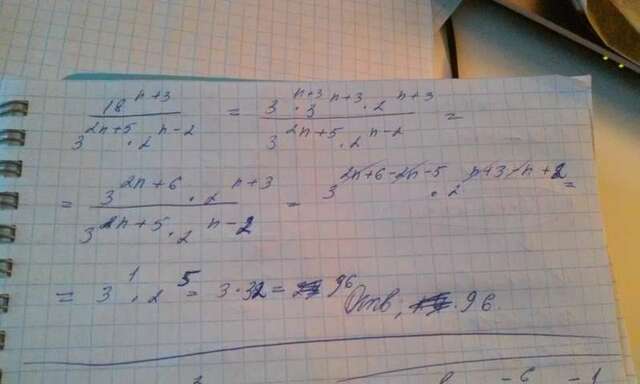 18^{n+3} / 3^{2n+5} · 2^{n-2} = 3^{n+3} · 3^{n+3} · 2^{n+3} / 3^{2n+5} · 2^{n-2} =
= 3^{2n+6} · 2^{n+3} / 3^{2n+5} · 2^{n-2} = 3^{2n+6-2n-5} · 2^{n+3-n+2} =
= 3^1 · 2^5 = 3·32 = 96 Отв, 96.